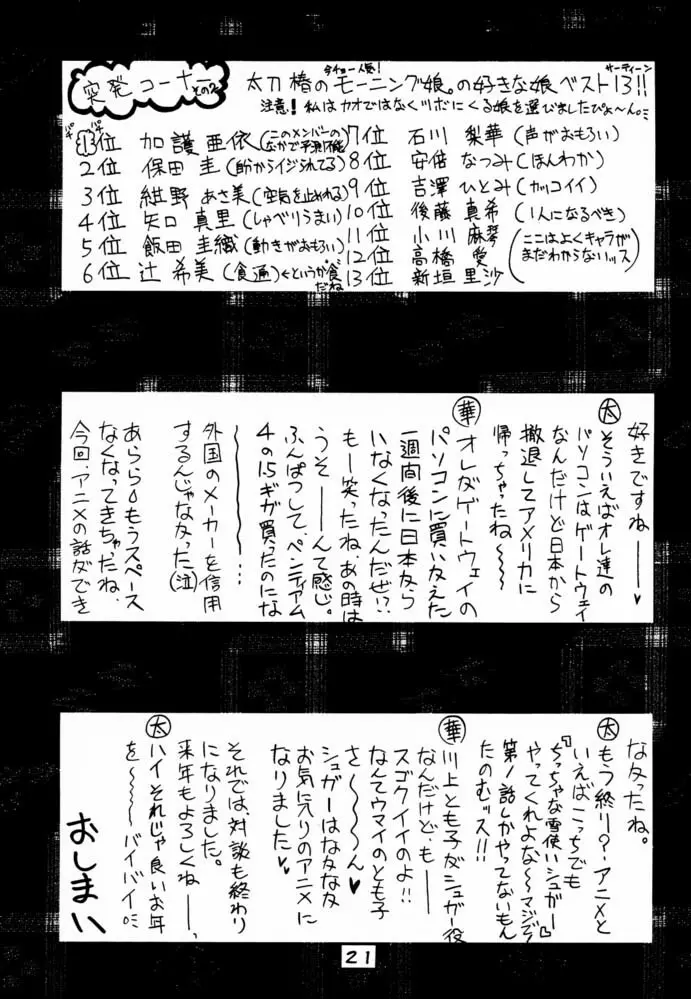 突発コーナー その2
今チョー人気!
サーティーン
太刀椿のモーニング娘。の好きな娘ベスト13!!
注意!私はカオではなくツボにくる娘を選びましたぴょ〜ん。
1位 加護亜依(このメンバーのなかで予測不能)
2位 保田 圭(助からイジられてる)
3位 紺野 あさ美(空気を止めれる)
4位 矢口 真里(しゃべりうまい)
5位 飯田 圭織(動きがおもろい)
6位 辻 希美(食遍)←というか食だね
7位 石川 梨華(声がおもろい)
8位 安倍 なつみ(ほんわか)
9位 吉澤 ひとみ(カッコイイ)
10位 後藤 真希(1人になるべき)
11位 小川 麻琴
12位 高橋 愛
13位 新垣 里沙
(ここはよくキャラがまだわからないッス)
好きですねー♥
太 そういえばオレ達の
パソコンはゲートウェイ
なんだけど日本から
撤退してアメリカに
帰っちゃったね〜〜
華 オレがゲートウェイの
パソコンに買い替えた
一週間後に日本から
いなくなったんだぜ!?
もー笑ったね、あの時は
うそーーんて感じ。
ふんぱつして、ペンティアム
4の1.5ギガ買ったのにな
〜〜〜〜〜…
外国のメーカーを信用
するんじゃなかった(泣)
あららもうスペース
なくなってきちゃたね、
今回、アニメの話ができ
なかったね。
太 もう終り?アニメと
いえばこっちでも
『ちっちゃな雪使いシュガー』
やってくれよな〜〜マジで
第1話しかやってないもん
たのむッス!!
華 川上とも子がシュガー役
なんだけどもーー
スゴクイイのよ!!
なんてウマイのとも子
さ〜〜〜ん♥
シュガーはなかなか
お気に入りのアニメに
なりました♥♥
それでは、対談も終わり
になりました。
来年もよろしくねーー、
太 ハイそれじゃ良いお年
を〜〜〜〜バイバイ
おしまい
21